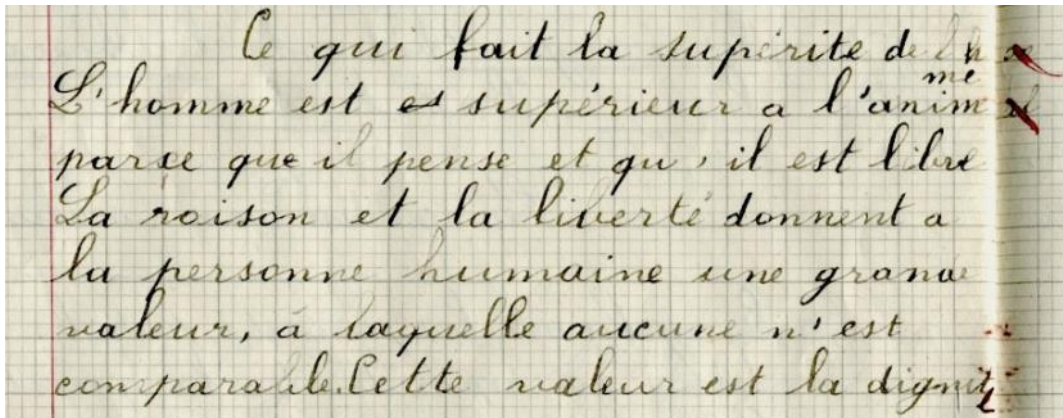 Ce qui fait la supérite de l'h
L'homme est es supérieur a l'anim
me
parce que il pense et qu'il est libre
La raison et la liberté donnent a
la personne humaine une grande
valeur, à laquelle aucune n'est
comparable. Cette valeur est la dignit